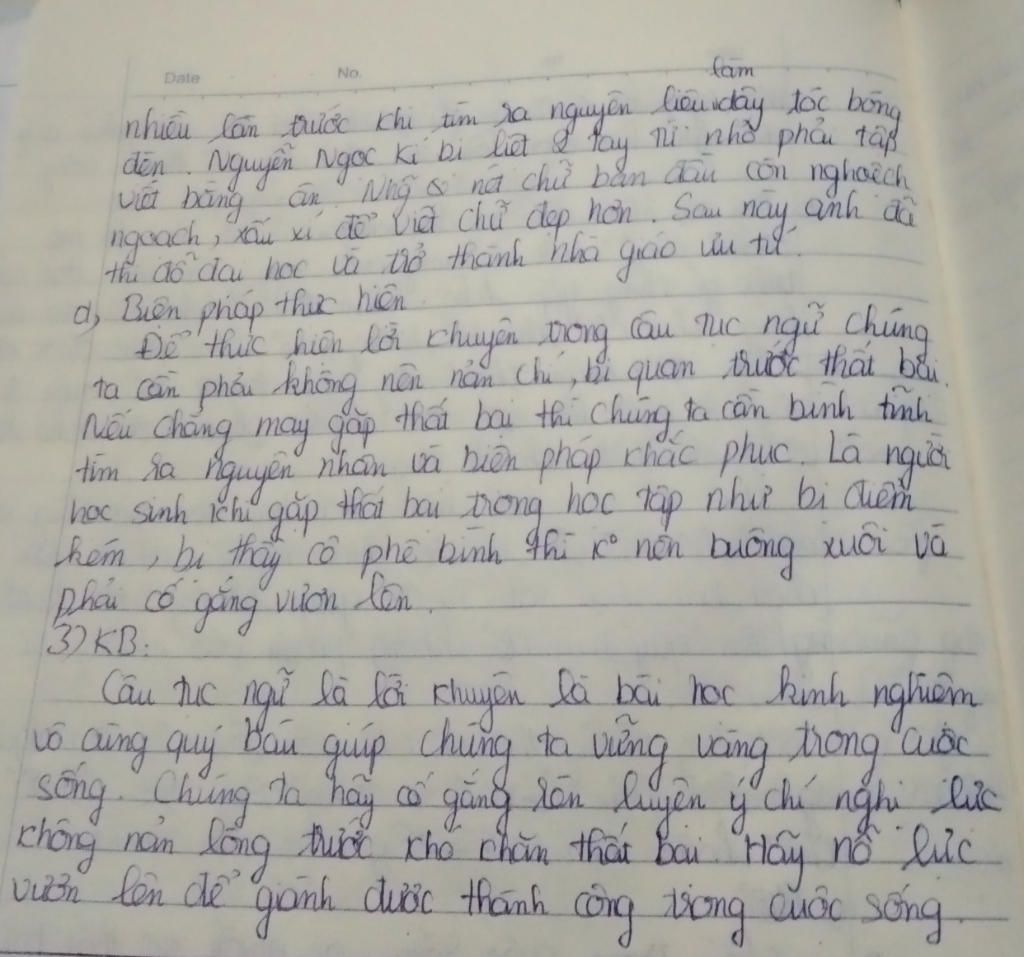 Date No.
làm
nhiều lần trước khi tìm ra nguyên liệu dây tóc bóng
đèn. Nguyễn Ngọc Kí bị liệt 2 tay từ nhỏ phải tập
viết bằng nét chữ ban đầu còn nghoệch
ngoạch, xấu xí để viết chữ đẹp hơn. Sau này anh đã
thi đỗ đại học và trở thành nhà giáo ưu tú.
d, Biện pháp thực hiện
Để thực hiện lời khuyên trong câu tục ngữ chúng
ta cần phải không nên nản chí, bi quan trước thất bại.
Nếu chẳng may gặp thất bại thì chúng ta cần bình tĩnh
tìm ra nguyên nhân và biện pháp khắc phục. Là người
học sinh khi gặp thất bại trong học tập như bị điểm
kém, bị thầy cô phê bình thì k° nên buông xuôi và
phải cố gắng vươn lên.
3) KB:
Câu tục ngữ là lời khuyên là bài học kinh nghiệm
vô cùng quý báu giúp chúng ta vững vàng trong cuộc
sống. Chúng ta hãy cố gắng rèn luyện ý chí nghị lực
không nản lòng trước khó khăn thất bại. Hãy nỗ lực
vươn lên để giành được thành công trong cuộc sống.